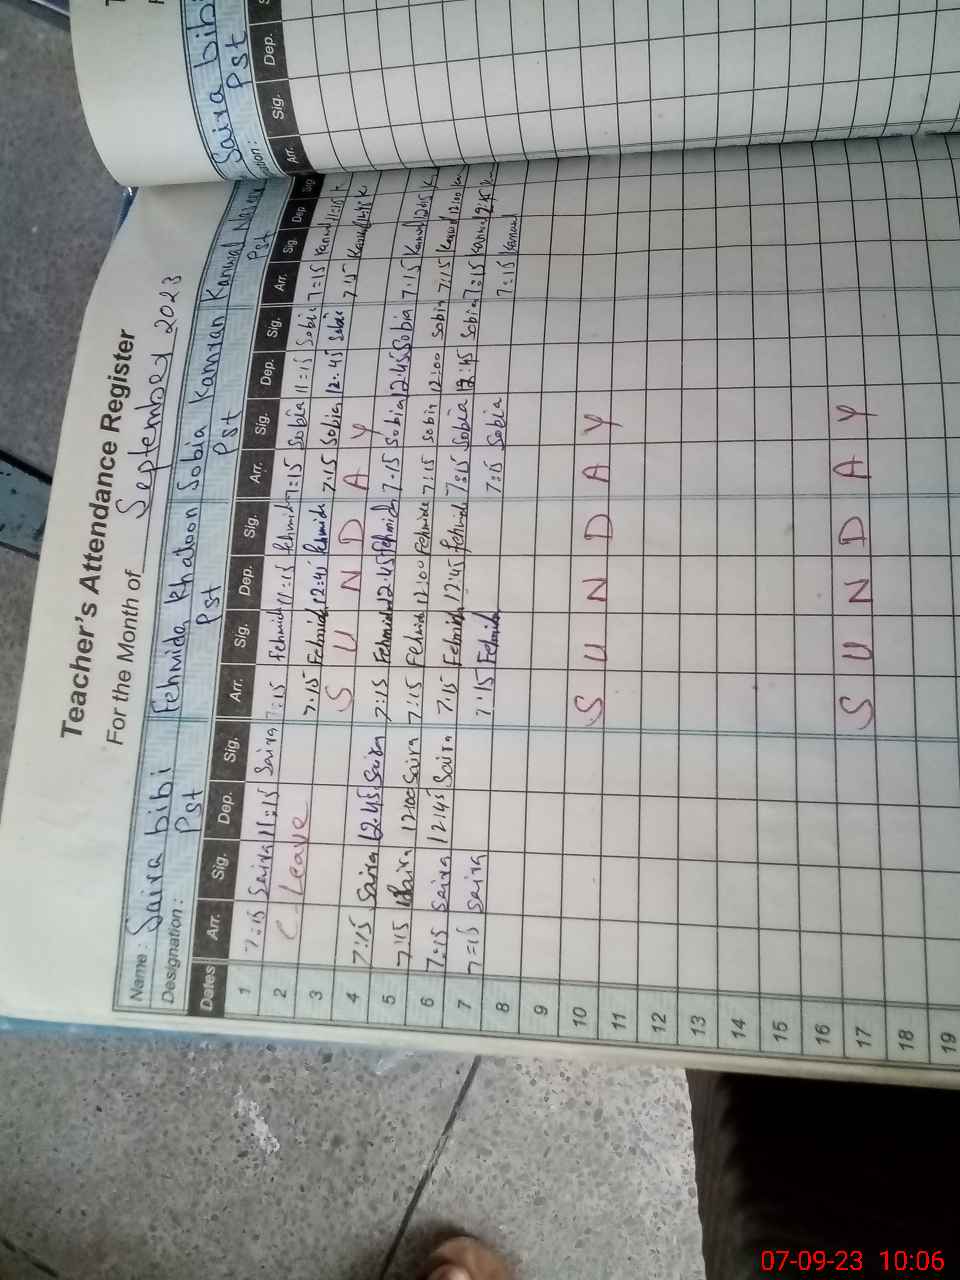 Teacher's Attendance Register
For the Month of September 2023
Name: Saira bibi Fehmida Khatoon Sobia Kamran Kanwal
Designation: Pst Pst Pst Pst
Dates Arr. Sig. Dep. Sig. Arr. Sig. Dep. Sig. Arr. Sig. Dep. Sig. Arr. Sig. Dep Sig
1 7:15 Saira 11:15 Saira 7:15 Fehmida 11:15 Fehmida 7:15 Sobia 11:15 Sobia 7:15 Kanwal 11:15 K
2 C. Leave 7:15 Fehmida 12:45 Fehmida 7:15 Sobia 12:45 Sobia 7:15 Kanwal 12:45 K
3 S U N D A Y
4 7:15 Saira 12:45 Saira 7:15 Fehmida 12:45 Fehmida 7:15 Sobia 12:45 Sobia 7:15 Kanwal 12:15 K
5 7:15 Saira 12:00 Saira 7:15 Fehmida 12:00 Fehmida 7:15 Sobia 12:00 Sobia 7:15 Kanwal 12:00 Kan
6 7:15 Saira 12:45 Saira 7:15 Fehmida 12:45 Fehmida 7:15 Sobia 12:45 Sobia 7:15 Kanwal 12:45 K
7 7:15 Saira 7:15 Fehmida 7:15 Sobia 7:15 Kanwal
8
9
10 S U N D A Y
11
12
13
14
15
16
17 S U N D A Y
18
19
Saira bibi
ation: Pst
Arr. Sig. Dep. S
07-09-23 10:06